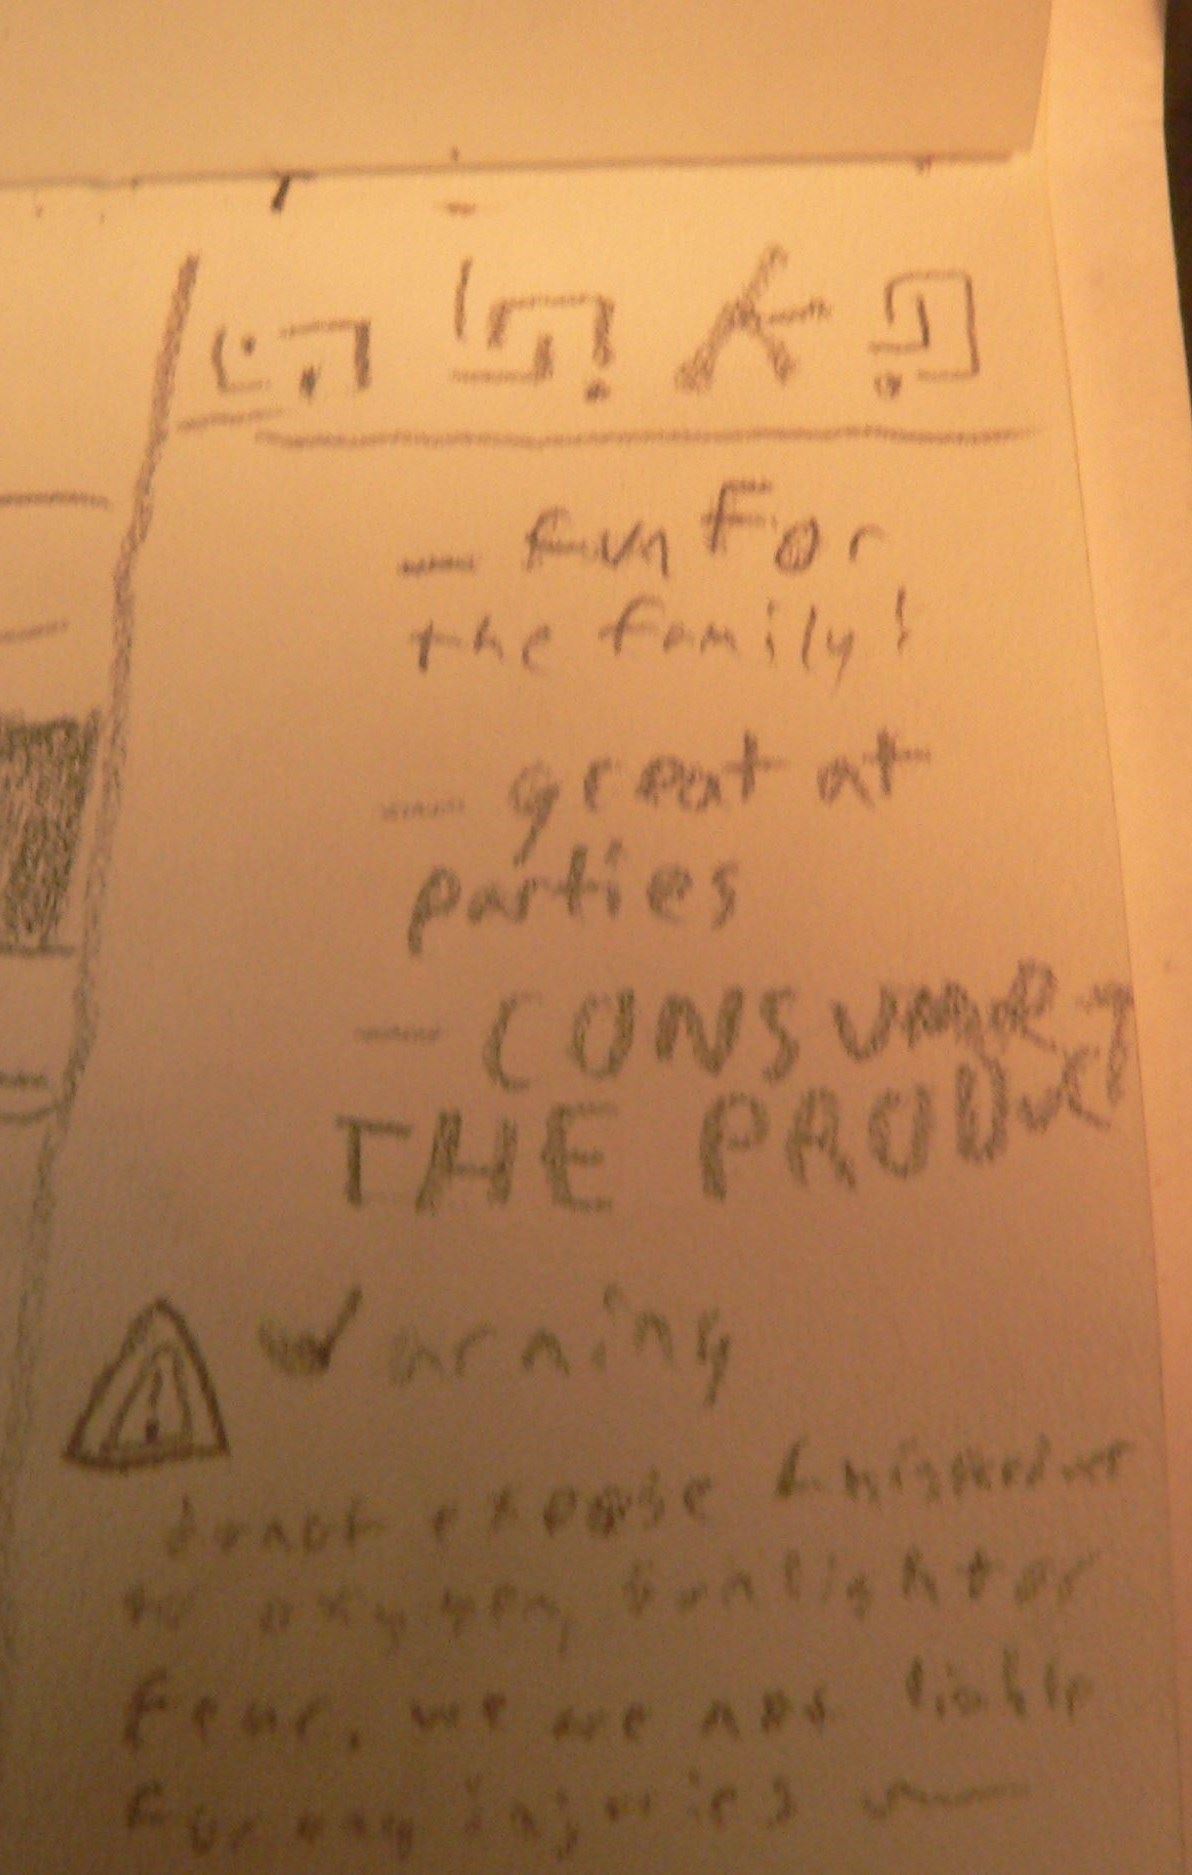 - fun For
the family!
- great at
parties
- CONSUMER
THE PRODUCT
Warning
do not expose
to oxygen, sunlight or
Fear. we are not liable
for any injuries